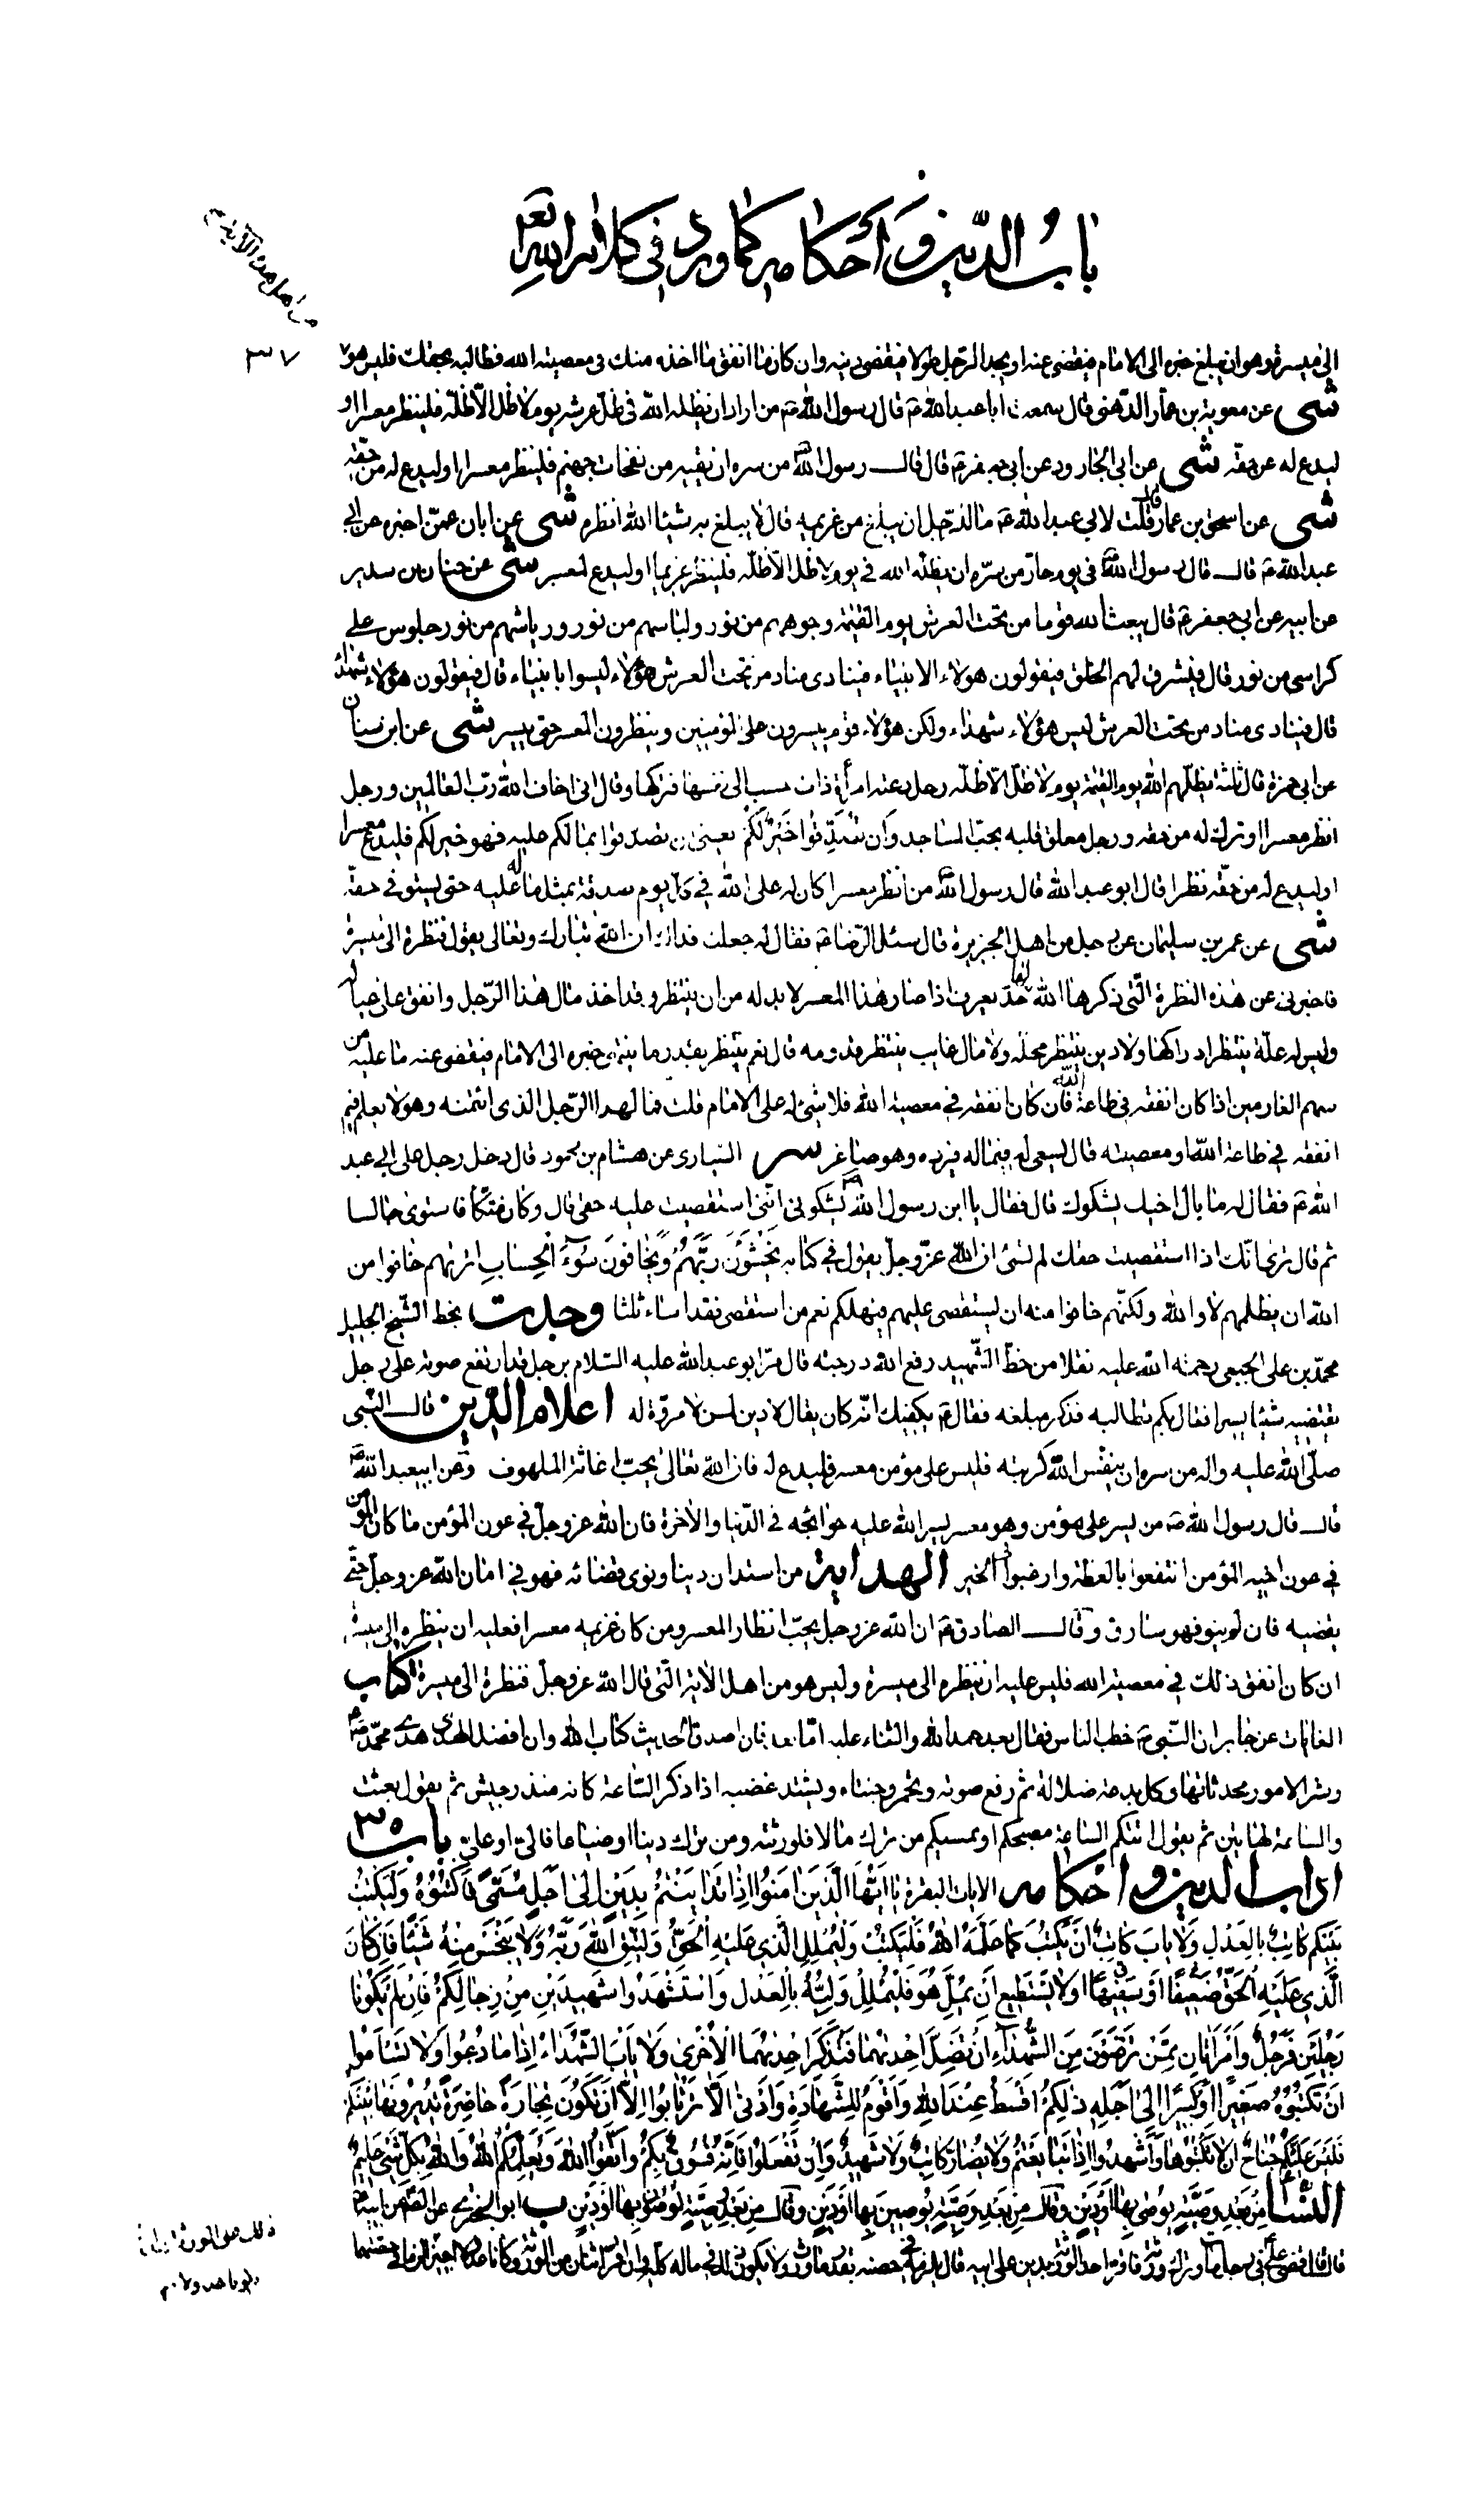 باب الدين و أحكامه كما ورد في كلام الله تعا
من اهل هذه الآية م
٣٧
الى ميسرة وهو ان يبلغ خبره الى الامام فيقضى عنه او يجد الرّجل طولا فيقضى دينه وان كان ما انفق ما اخذه منك فى معصية الله فطالبه بحقك فليس هو
شى عن معوية بن عمار الدّهنى قال سمعت ابا عبد الله ع قال رسول الله ص من اراد ان يظله الله فى ظل عرشه يوم لا ظل الّا ظلّه فلينظر معسرا او
ليدع له عن حقّه شى عن ابى الجارود عن ابى جعفر ع قال قال رسول الله ص من سره ان يقيه من نفحات جهنم فلينظر معسرا او ليدع له من حقّه
شى عن اسحق بن عمار قال قلت لابي عبد الله ع ما للرّجل ان يبلغ من غريمه قال لا يبلغ به شيئا الله انظره شى عن ابان عمّن اخبره عن ابي
عبد الله ع قال قال رسول الله ص فى يوم حارّ من سرّه ان يظلّه الله في يوم لا ظل الّا ظلّه فلينظر غريما او ليدع لمعسر شى عن حنان بن سدير
عن ابيه عن ابى جعفر ع قال يبعث الله قوما من تحت العرش يوم القيمة وجوههم من نور ولباسهم من نور ورياشهم من نور جلوس على
كراسى من نور قال فيشرف لهم الخلق فيقولون هولاء الانبياء فينادى مناد من تحت العرش هؤلاء ليسوا بانبياء قال فيقولون هؤلاء شهداء
قال فينادى مناد من تحت العرش ليس هؤلاء شهداء ولكن هؤلاء قوم ييسرون على المؤمنين وينظرون المعسر حتى ييسر شى عن ابن سنان
عن ابى حمزة قال ثلثة يظلّهم الله يوم القيمة يوم لا ظلّ الّا ظلّه رجل دعته امرأة ذات حسب الى نفسها فتركها وقال انى اخاف الله ربّ العالمين ورجل
انظر معسرا او ترك له من حقه ورجل معلق قلبه بحبّ المساجد وَان تَصَدّقُوا خَيرٌ لَكُم يعنى ان تصدّقوا بمالكم عليه فهو خير لكم فليدع معسرا
او ليدع له من حقّه نظرا قال ابو عبد الله قال رسول الله ص من انظر معسرا كان له على الله في كل يوم صدقة بمثل ماله عليه حتى يستوفى حقّه
شى عن عمر بن سليمان عن رجل من اهل الجزيرة قال سئل الرّضا ع فقال له جعلت فداك ان الله تبارك وتعالى يقول فنظرة الى ميسرة
فاخبرنى عن هذه النظرة الّتى ذكرها الله لها حدّ يعرف اذا صار هذا المعسر لا بدّ له من ان ينتظر وقد اخذ مال هذا الرّجل وانفق على عياله
وليس له غلّة ينتظر ادراكها ولا دين ينتظر محلّه ولا مال غايب ينتظر قدومه قال نعم ينتظر بقدر ما ينتهى خبره الى الامام فيقضى عنه ما عليه من
سهم الغارمين اذا كان انفقه فى طاعة الله فان كان انفقه فى معصية الله فلا شئ له على الامام قلت فما لهذا الرّجل الذى ائتمنه وهو لا يعلم فيم
انفقه فى طاعة الله او معصيته قال يسعى له فيماله فيرده وهو صاغر سر السّيارى عن هشام بن محمود قال دخل رجل على ابي عبد
الله ع فقال له ما بال اخيك يشكوك قال فقال يا ابن رسول الله ص يشكونى انّنى استقصيت عليه حقى قال وكان متّكأ فاستوى جالسا
ثم قال ترى انّك اذا استقصيت حقك لم تسئ ان الله عزّ وجل يقول فى كتابه يَخْشَوْنَ رَبَّهُمْ وَيَخافُونَ سُوءَ الْحِسابِ اتراهم خافوا من
الله ان يظلمهم لا والله ولكنّهم خافوا منه ان يستقصى عليهم فيهلكهم نعم من استقصى فقد اساء ثلثا وجدت بخط الشّيخ الجليل
محمّد بن على الجبعى رحمة الله عليه نقلا من خطّ الشّهيد رفع الله درجته قال مرّ ابو عبد الله عليه السّلام برجل قد ارتفع صوته على رجل
يقتضيه شيئا يسيرا فقال بكم تطالبه فذكر مبلغه فقال ع يكفيك انّه كان يقال لا دين لمن لا مروّة له اعلام الدّين قال النّبى
صلّى الله عليه واله من سره ان ينفّس الله كربته فليس على مؤمن معسر فليدع له فان الله تعالى يحبّ اغاثة الملهوف وعن ابيعبد الله ع
قال قال رسول الله ص من يسر على مؤمن وهو معسر يسر الله عليه حوائجه فى الدّنيا والاخرة فان الله عز وجلّ فى عون المؤمن ما كان المؤمن
فى عون اخيه المؤمن انتفعوا بالعظة وارغبوا فى الخير الهداية من استدان دينا ونوى قضائه فهو فى امان الله عز وجل حتّى
يقضيه فان لم ينو فهو سارق وقال الصادق ع ان الله عز وجل يحبّ انظار المعسر ومن كان غريمه معسرا فعليه ان ينظره الى ميسرة
ان كان انفق ذلك فى معصية الله فليس عليه ان ينظره الى ميسرة وليس هو من اهل الاية الّتى قال الله عز وجلّ فنظرة الى ميسرة كتاب
الغايات عن جابر ان النّبى ص خطب الناس فقال بعد حمد الله والثناء عليه امّا بعد فان اصدق الحديث كتاب الله وان افضل الهدى هدى محمّد ص
وشر الامور محدثاتها وكل بدعة ضلالة ثم رفع صوته وتحمر وجنتاه ويشتد غضبه اذا ذكر السّاعة كانه منذر جيش ثم يقول بعثت
والساعة كهاتين ثم يقول اتتكم الساعة مصبحكم او ممسيكم من ترك مالا فلورثته ومن ترك دينا او ضياعا فالىّ او علىّ باب ٣٥
اداب الدين و احكامه الايات البقرة يا اَيُّهَا الَّذينَ امَنُوا اِذا تَدايَنْتُمْ بِدَيْنٍ اِلى اَجَلٍ مُسَمًّى فَاكْتُبُوهُ وَلْيَكْتُبْ
بَيْنَكُمْ كاتِبٌ بِالْعَدْلِ وَلا يَابَ كاتِبٌ اَنْ يَكْتُبَ كَما عَلَّمَهُ اللهُ فَلْيَكْتُبْ وَلْيُمْلِلِ الَّذى عَلَيْهِ الْحَقُّ وَلْيَتَّقِ اللهَ رَبَّهُ وَلا يَبْخَسْ مِنْهُ شَيْئًا فَاِنْ كانَ
الَّذى عَلَيْهِ الْحَقُّ ضَعيفًا اَوْ سَفيهًا اَوْ لا يَسْتَطيعُ اَنْ يُمِلَّ هُوَ فَلْيُمْلِلْ وَلِيُّهُ بِالْعَدْلِ وَاسْتَشْهِدُوا شَهيدَيْنِ مِنْ رِجالِكُمْ فَاِنْ لَمْ يَكُونا
رَجُلَيْنِ فَرَجُلٌ وَامْرَاَتانِ مِمَّنْ تَرْضَوْنَ مِنَ الشُّهَداءِ اَنْ تَضِلَّ اِحْديهُما فَتُذَكِّرَ اِحْديهُمَا الْاُخْرى وَلا يَابَ الشُّهَداءُ اِذا ما دُعُوا وَلا تَسْاَمُوا
اَنْ تَكْتُبُوهُ صَغيرًا اَوْ كَبيرًا اِلى اَجَلِهِ ذلِكُمْ اَقْسَطُ عِنْدَ اللهِ وَاَقْوَمُ لِلشَّهادَةِ وَاَدْنى اَلَّا تَرْتابُوا اِلَّا اَنْ تَكُونَ تِجارَةً حاضِرَةً تُديرُونَها بَيْنَكُمْ
فَلَيْسَ عَلَيْكُمْ جُناحٌ اَنْ لا تَكْتُبُوها وَاَشْهِدُوا اِذا تَبايَعْتُمْ وَلا يُضارَّ كاتِبٌ وَلا شَهيدٌ وَاِنْ تَفْعَلُوا فَاِنَّهُ فُسُوقٌ بِكُمْ وَاتَّقُوا اللهَ وَيُعَلِّمُكُمُ اللهُ وَاللهُ بِكُلِّ شَىْءٍ عَليمٌ
النساء مِنْ بَعْدِ وَصِيَّةٍ يُوصى بِها اَوْ دَيْنٍ وقال مِنْ بَعْدِ وَصِيَّةٍ يُوصينَ بِها اَوْ دَيْنٍ وقال مِنْ بَعْدِ وَصِيَّةٍ تُوصُونَ بِها اَوْ دَيْنٍ ب ابو البخترى عن الصّادق عن ابيه ع
قال قال قضى علىّ ع فى رجل مات وترك ورثة فاقرّ احد الورثة بدين على ابيه قال يلزمه فى حصته بقدر ما ورث ولا يكون ذلك فى ماله كله وان اقرّ اثنان من الورثة وكانا عدلين اجيز
ذلك على الورثة